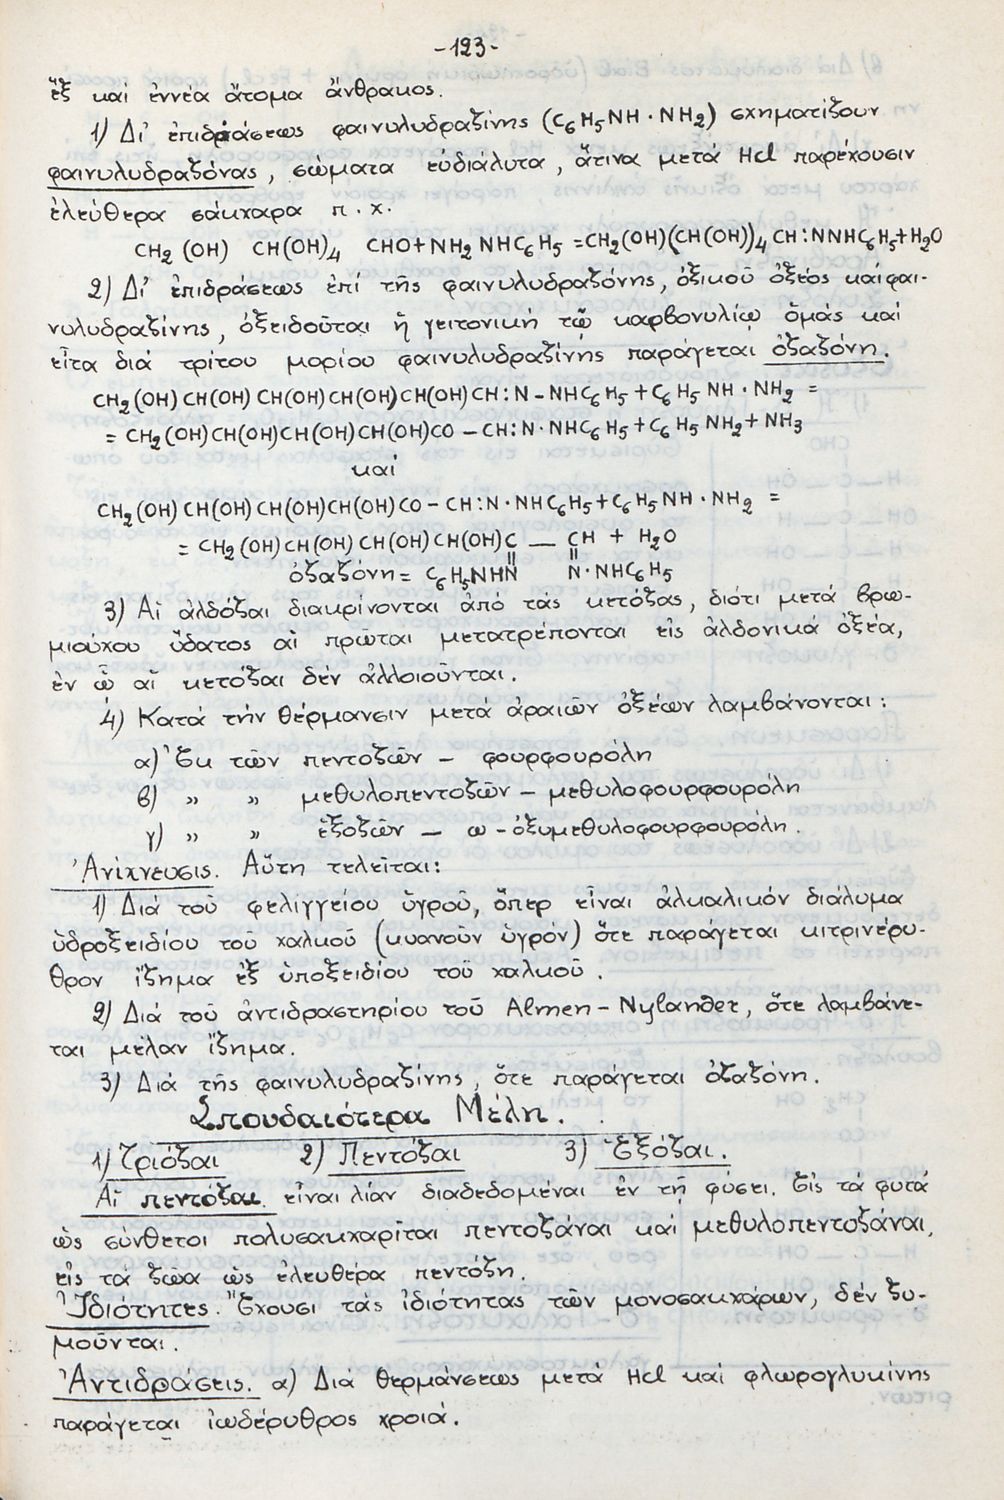 -123-
ἕξ καί ἐννέα ἄτομα ἄνθρακος.
1) Δι' ἐπιδράσεως φαινυλυδραζίνης (C6H5NH·NH2) σχηματίζουν
φαινυλυδραζόνας, σώματα εὐδιάλυτα, ἅτινα μετά Hcl παρέχουσιν
ἐλεύθερα σάκχαρα π.χ.
CH2(OH) CH(OH)4 CHO+NH2 NHC6H5 =CH2(OH)(CH(OH))4 CH:NNHC6H5+H2O
2) Δι' ἐπιδράσεως ἐπί τῆς φαινυλυδραζόνης, ὀξικοῦ ὀξέος καί φαι-
νυλυδραζίνης, ὀξειδοῦται ἡ γειτονική τῷ καρβονυλίῳ ὁμάς καί
εἶτα διά τρίτου μορίου φαινυλυδραζίνης παράγεται ὀζαζόνη.
CH2(OH) CH(OH) CH(OH) CH(OH) CH(OH) CH:N-NHC6H5+C6H5 NH·NH2 =
= CH2(OH)CH(OH)CH(OH)CH(OH)CO - CH:N·NHC6H5+C6H5 NH2+NH3
καί
CH2(OH)CH(OH)CH(OH)CH(OH)CO-CH:N·NHC6H5+C6H5NH·NH2 =
= CH2(OH)CH(OH)CH(OH)CH(OH)C — CH + H2O
ὀζαζόνη= C6H5NHN N·NHC6H5
3) Αἱ ἀλδόζαι διακρίνονται ἀπό τάς κετόζας, διότι μετά βρω-
μιούχου ὕδατος αἱ πρῶται μετατρέπονται εἰς ἀλδονικά ὀξέα,
ἐν ᾧ αἱ κετόζαι δέν ἀλλοιοῦνται.
4) Κατά τήν θέρμανσιν μετά ἀραιῶν ὀξέων λαμβάνονται:
α) Ἐκ τῶν πεντοζῶν - φουρφουρόλη
β) " " μεθυλοπεντοζῶν - μεθυλοφουρφουρόλη
γ) " " ἑξοζῶν - ω-ὀξυμεθυλοφουρφουρόλη.
Ἀνίχνευσις. Αὕτη τελεῖται:
1) Διά τοῦ φελιγγείου ὑγροῦ, ὅπερ εἶναι ἀλκαλικόν διάλυμα
ὑδροξειδίου τοῦ χαλκοῦ (κυανοῦν ὑγρόν) ὅτε παράγεται κιτρινέρυ-
θρον ἵζημα ἐξ ὑποξειδίου τοῦ χαλκοῦ.
2) Διά τοῦ ἀντιδραστηρίου τοῦ Almen-Nylander, ὅτε λαμβάνε-
ται μέλαν ἵζημα.
3) Διά τῆς φαινυλυδραζίνης, ὅτε παράγεται ὀζαζόνη.
Σπουδαιότερα Μέλη.
1) Τριόζαι 2) Πεντόζαι 3) Ἑξόζαι.
Αἱ πεντόζαι εἶναι λίαν διαδεδομέναι ἐν τῇ φύσει. Εἰς τά φυτά
ὡς σύνθετοι πολυσακχαρίται πεντοζάναι καί μεθυλοπεντοζάναι,
εἰς τά ζῶα ὡς ἐλευθέρα πεντόζη.
Ἰδιότητες. Ἔχουσι τάς ἰδιότητας τῶν μονοσακχάρων, δέν ζυ-
μοῦνται.
Ἀντιδράσεις. α) Διά θερμάνσεως μετά Hcl καί φλωρογλυκίνης
παράγεται ἰωδέρυθρος χροιά.